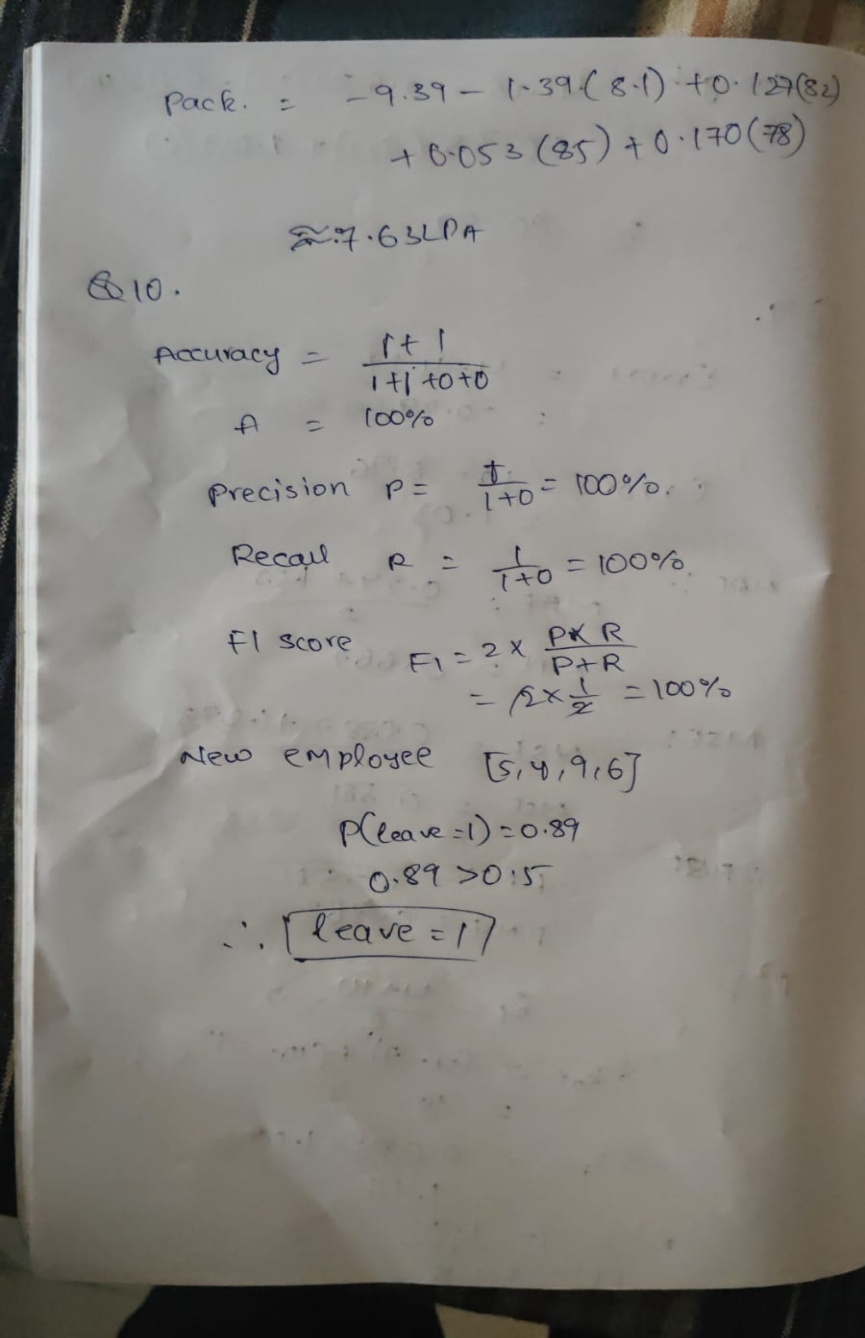 Pack. = -9.39 - 1.39(8.1) + 0.127(82)
+ 0.053(85) + 0.170(78)
≈ 7.63LPA
Q10.
Accuracy = 1+1 / 1+1+0+0
A = 100%
Precision P = 1 / 1+0 = 100%.
Recall R = 1 / 1+0 = 100%.
F1 score F1 = 2 x P x R / P+R
= 2 x 1/2 = 100%
New employee [5,4,9,6]
P(leave=1) = 0.89
0.89 > 0.5
∴ leave = 1